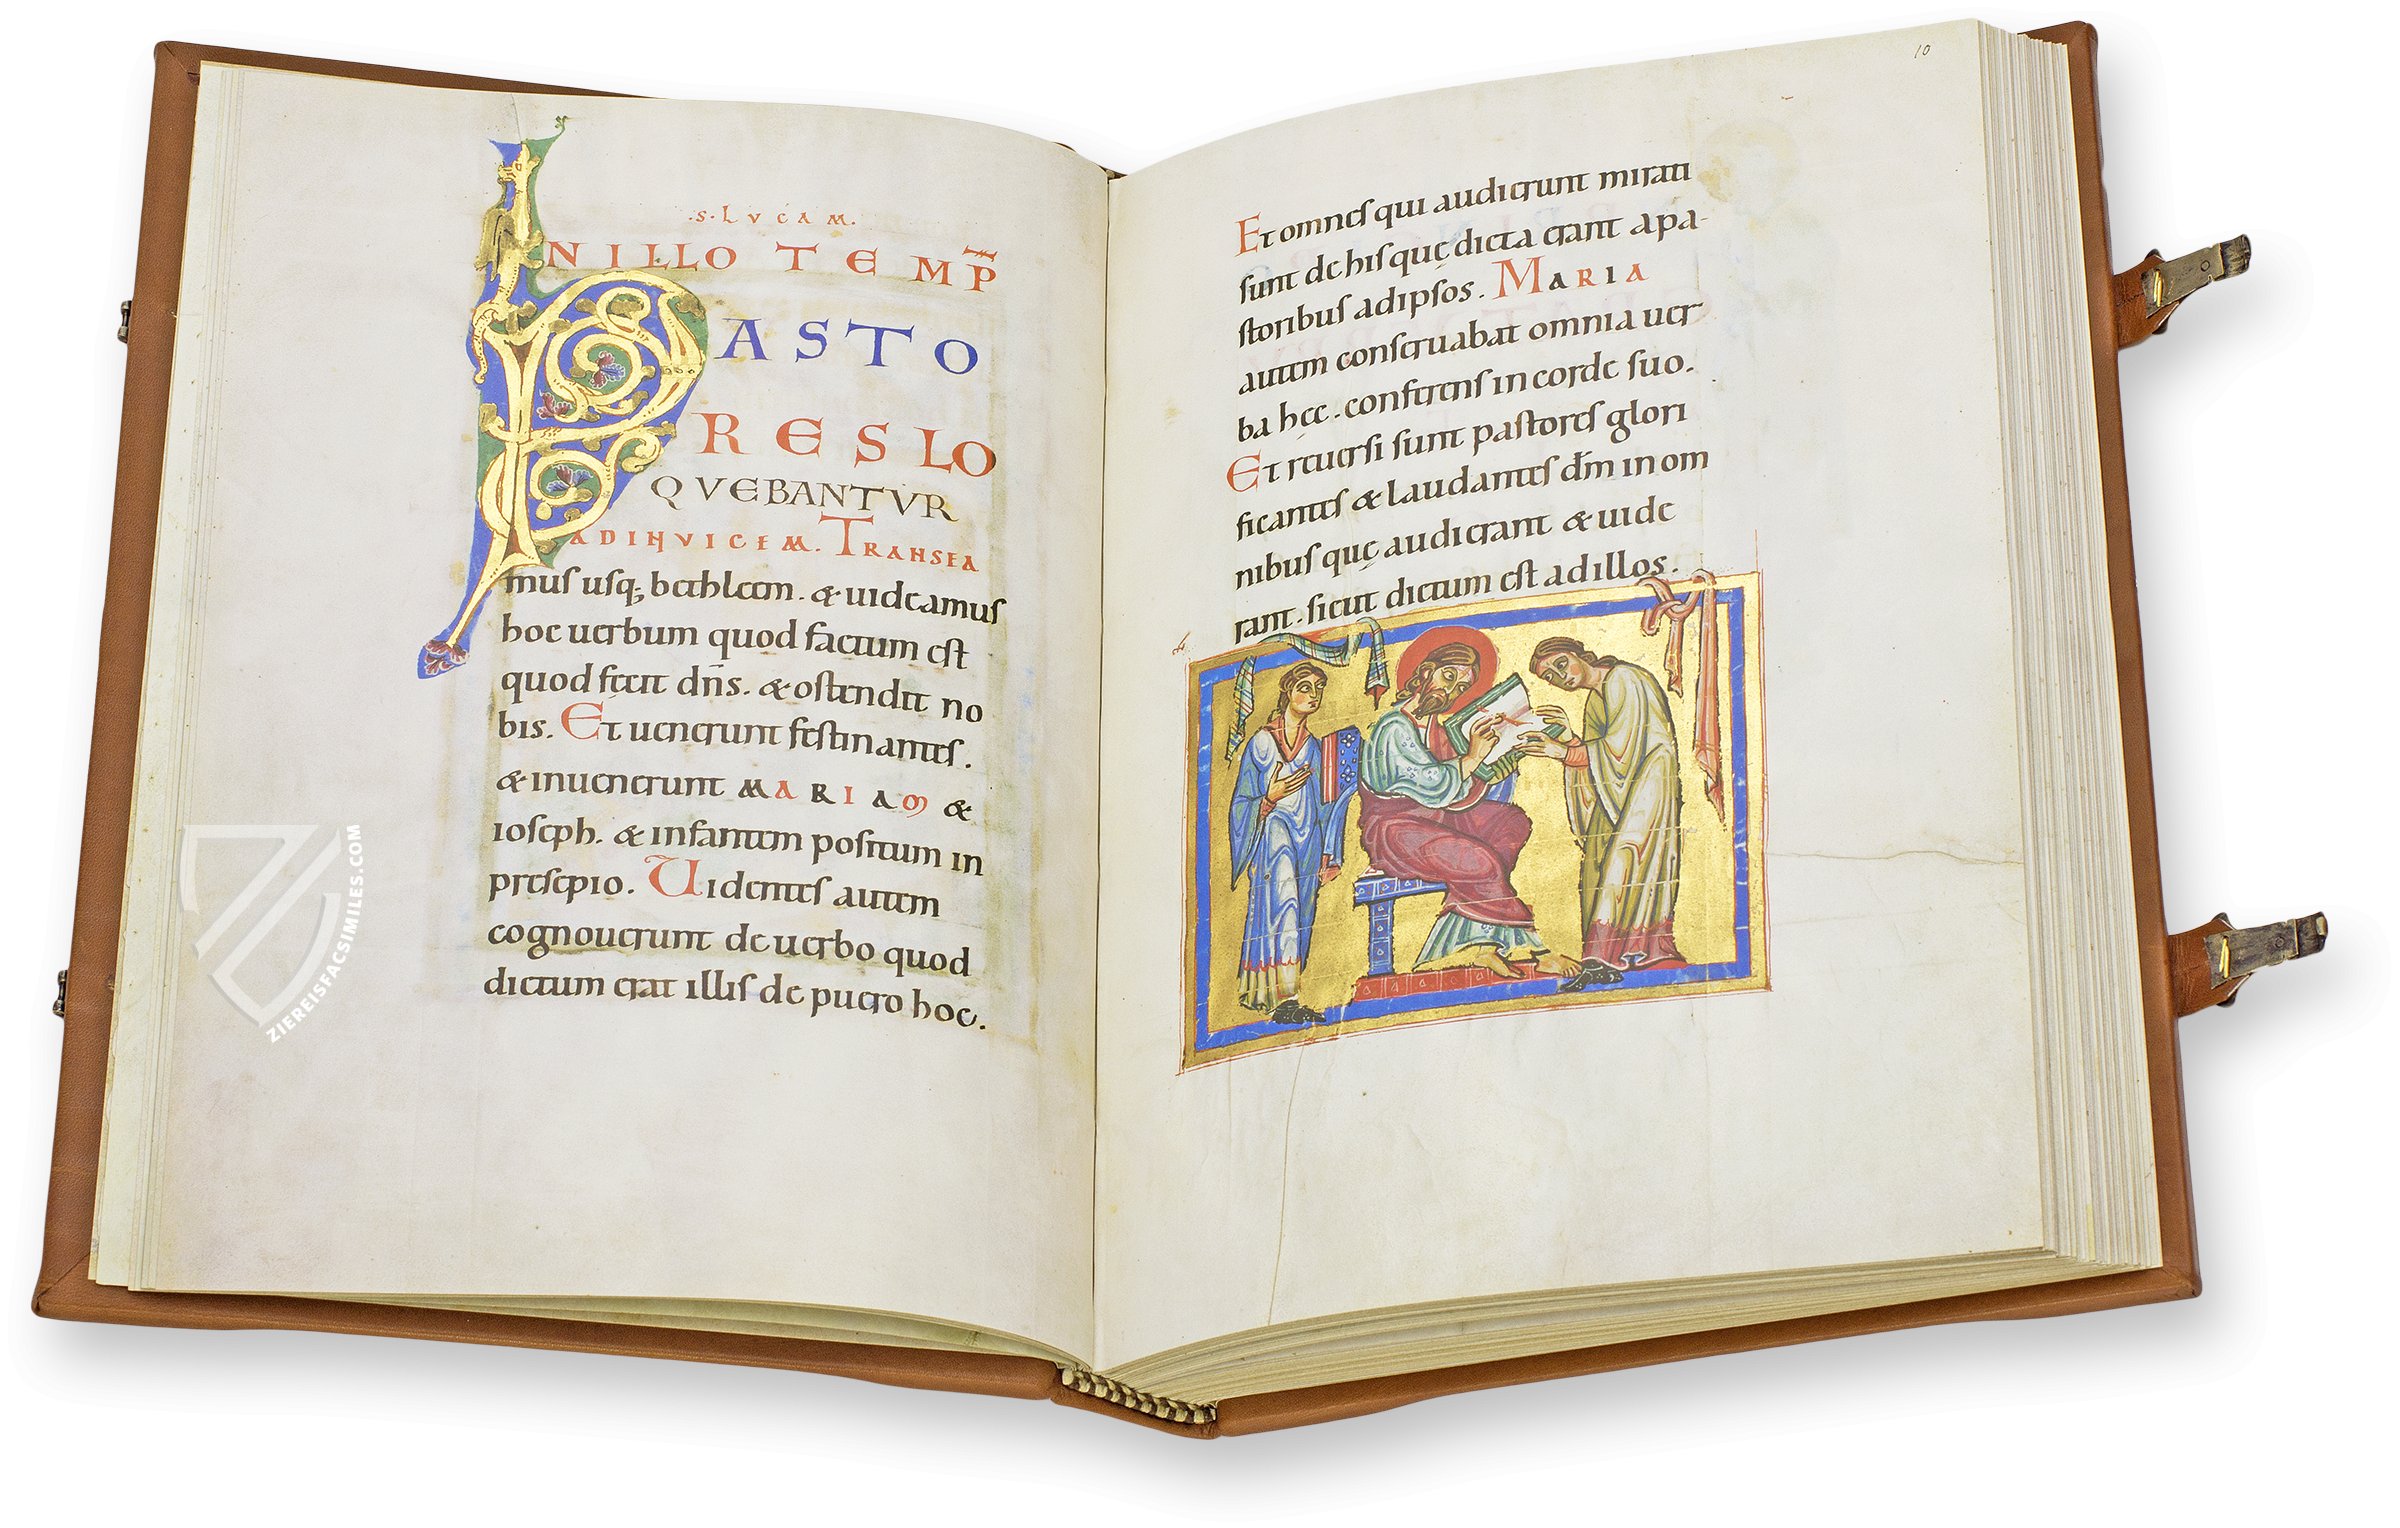 .S.LVCAM.
INILLO TEMP̄
PASTO
RES LO
QVEBANTVR
ADINVICEM. TRANSEA
mus usq; bethleem. & uideamus
hoc uerbum quod factum est
quod fecit dn̄s. & ostendit no
bis. Et uenerunt festinantes.
& inuenerunt MARIAM &
ioseph. & infantem positum in
presepio. Uidentes autem
cognouerunt de uerbo quod
dictum erat illis de puero hoc.
10
Et omnes qui audierunt mirati
sunt de his quę dicta erant a pa-
storibus ad ipsos. MARIA
autem conseruabat omnia uer
ba hęc. conferens in corde suo.
Et reuersi sunt pastores glori
ficantes & laudantes dm̄ in om
nibus quę audierant & uide
rant. sicut dictum est ad illos.
ZIEREISFACSIMILES.COM